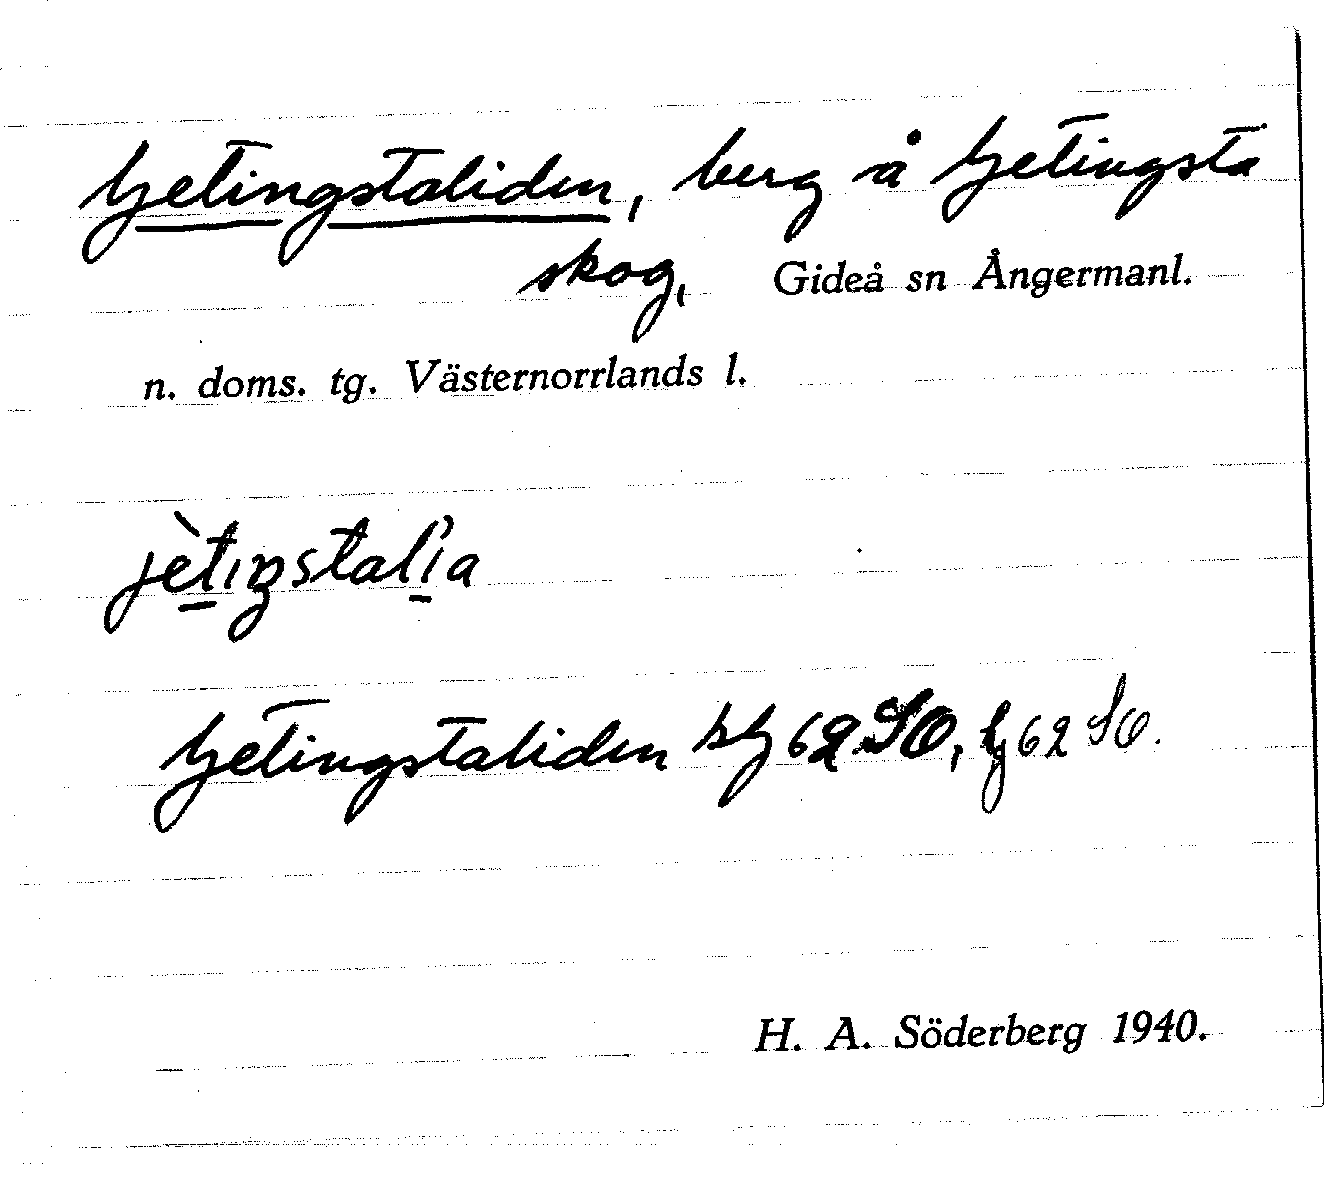 Getingstaliden, berg å Getingsta
skog, Gideå sn Ångermanl.
n. doms. tg. Västernorrlands l.
jètıŋstalìa
Getingstaliden 62 SO, 62 SO.
H. A. Söderberg 1940.